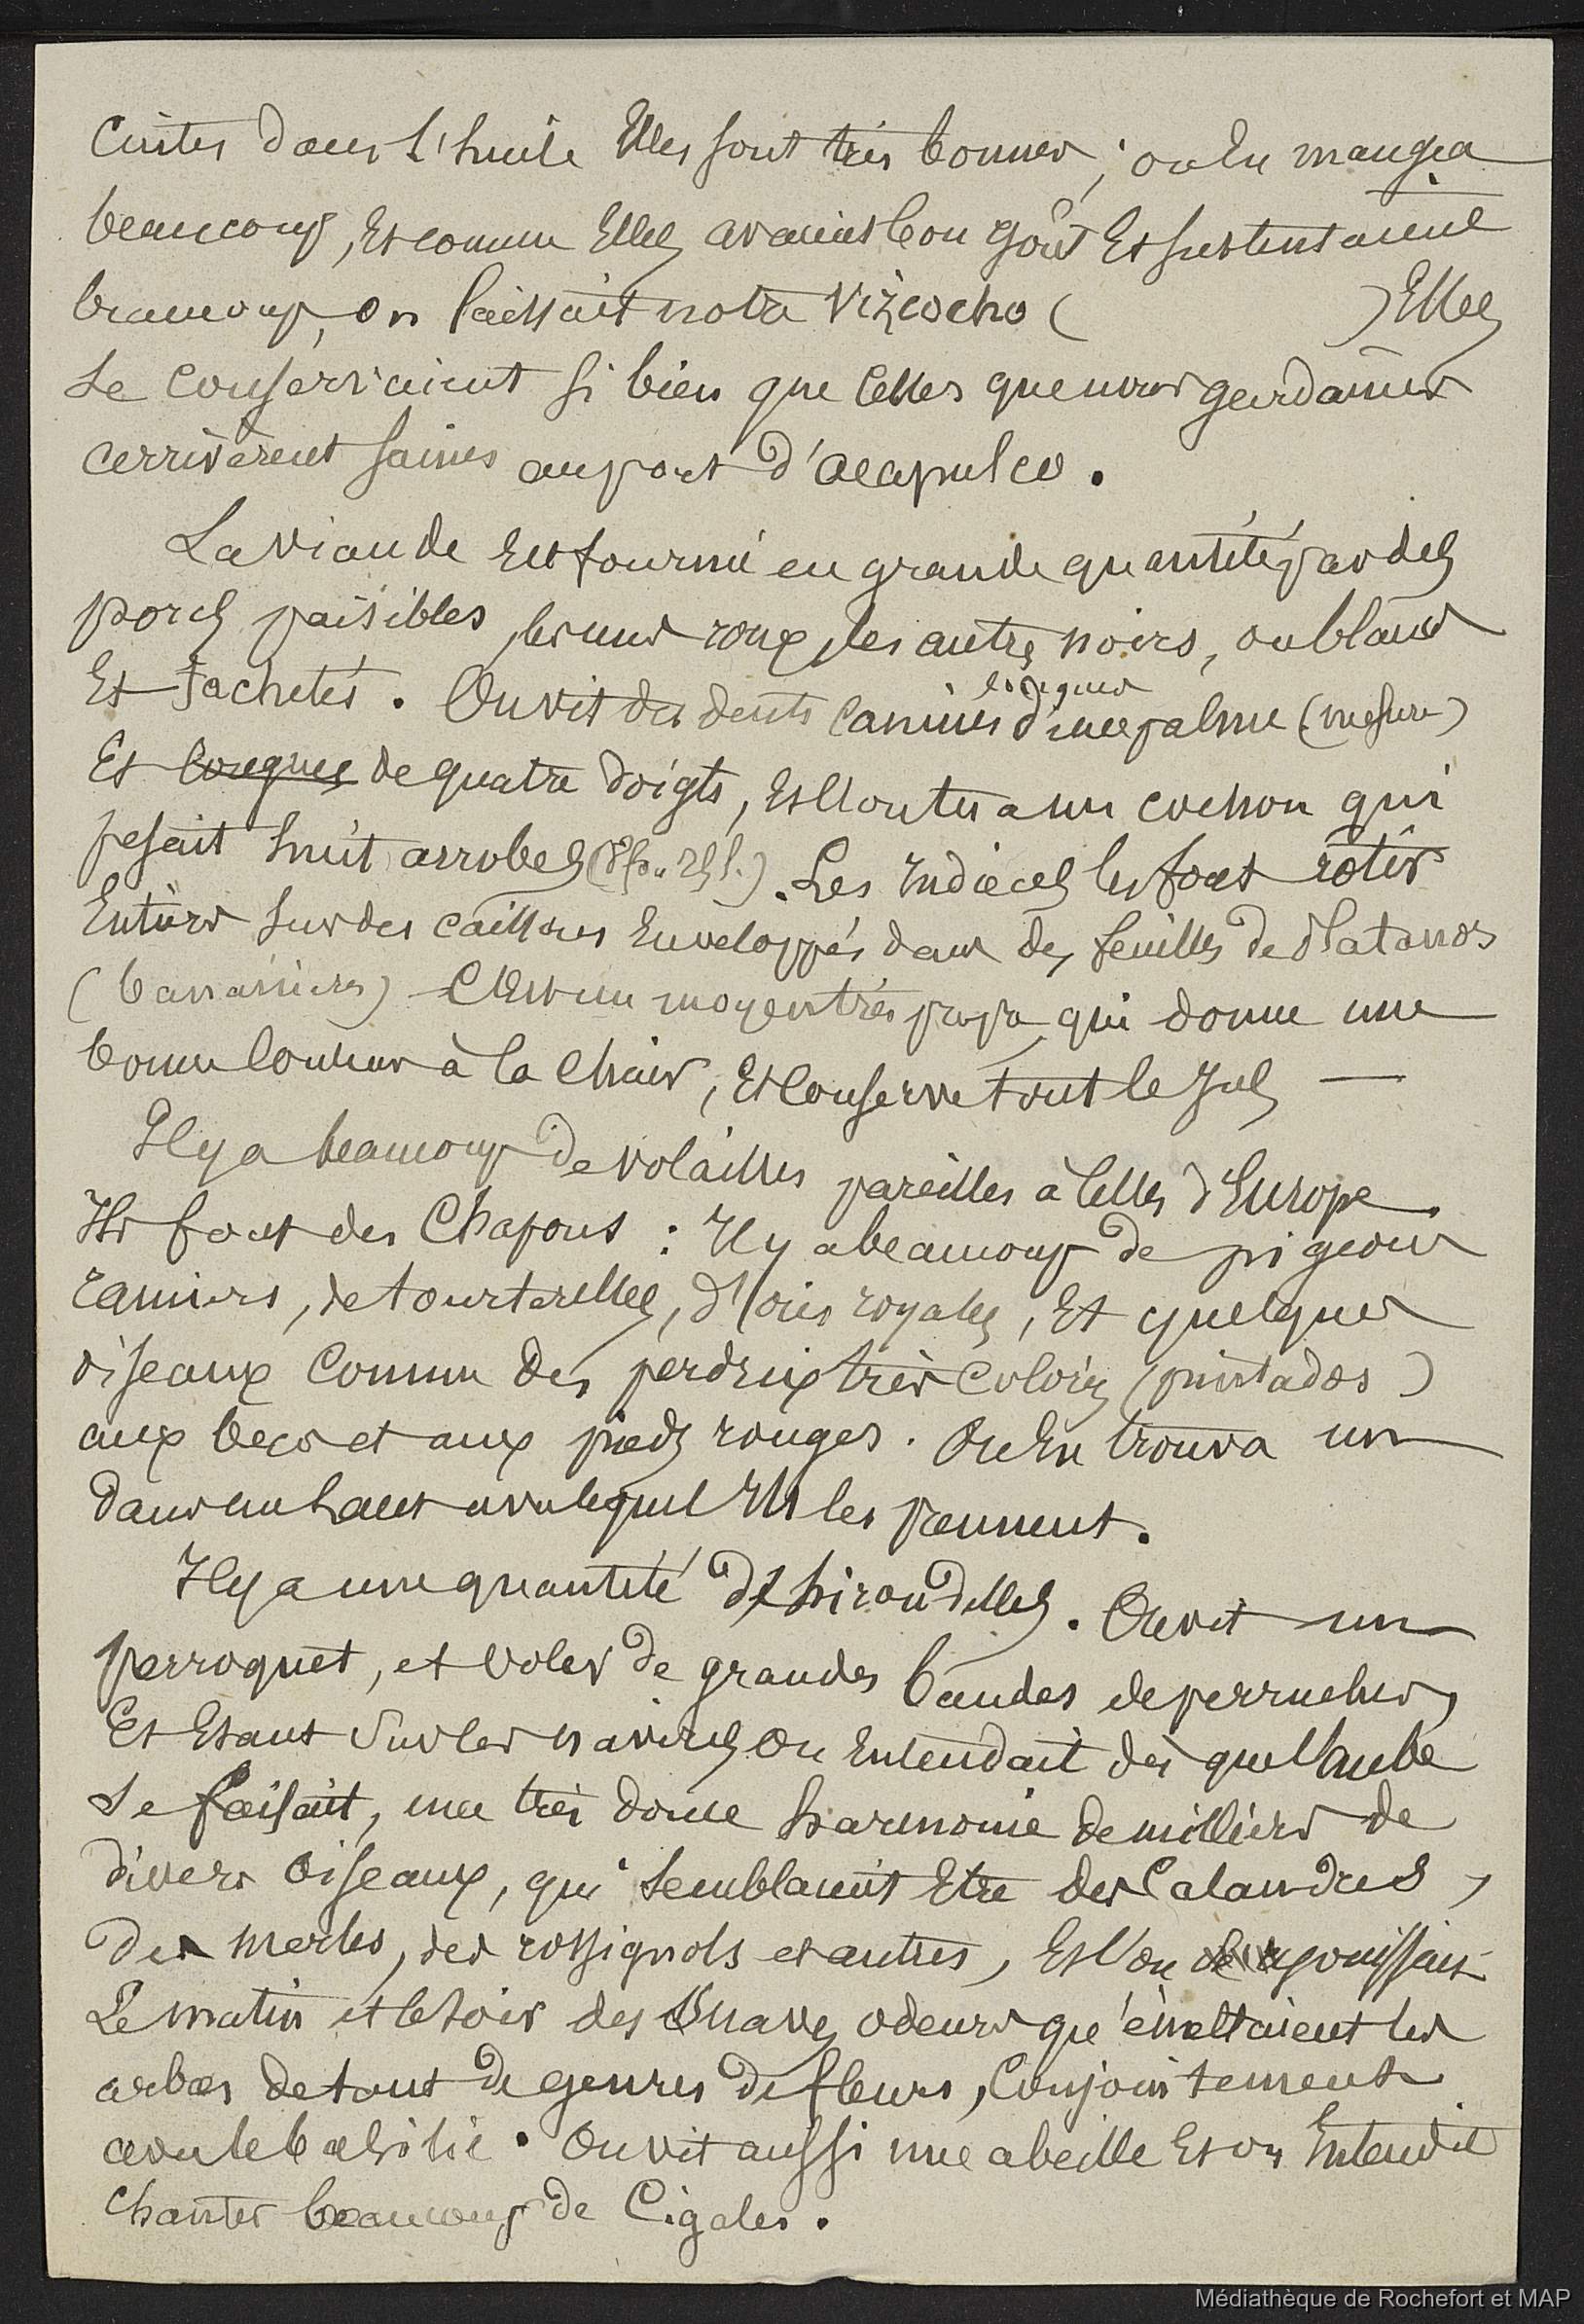 Cuites dans l'huile Elles sont très bonnes, on En mangea
beaucoup, Et comme Elles avaient bon goût Et sustentaient
beaucoup, on laissait notre Vizcocho (            ) Elles
se conservaient si bien que celles que nous gardâmes
arrivèrent saines au port d'Acapulco.
La viande Est fournie en grande quantité par des
porcs paisibles, les uns roux, les autres noirs, ou blancs
Et tachetés. On vit des dents canines longues d'une palme (mesure)
Et longues de quatre doigts, Et l'on tua un cochon qui
pesait huit arrobes. Les Indiens les font rôtir
Entiers sur des cailloux Enveloppés dans des feuilles de Platanos
(bananiers) C'Est un moyen très propre, qui donne une
bonne couleur à la chair, Et conserve tout le jus —
Il y a beaucoup de volailles pareilles à celles d'Europe.
Ils font des Chapons : Il y a beaucoup de pigeons
ramiers, de tourterelles, d'oies royales, Et quelques
oiseaux comme des perdrix très colorés (pintados)
aux becs et aux pieds rouges. On En trouva un
dans un avec lequel Ils les prennent.
Il y a une quantité d'hirondelles. On vit un
perroquet, et voler de grandes bandes de perruches,
Et Etant sur les navires on Entendait dès que l'aube
se faisait, une très douce harmonie de milliers de
divers oiseaux, qui semblaient Etre des Calandres,
des merles, des rossignols et autres, Et l'on jouissait
Le matin et le soir des suaves odeurs qu'émettaient les
arbres de tout de genres de fleurs, Conjointement
avec le basilic. On vit aussi une abeille Et on Entendit
chanter beaucoup de Cigales.
Médiathèque de Rochefort et MAP